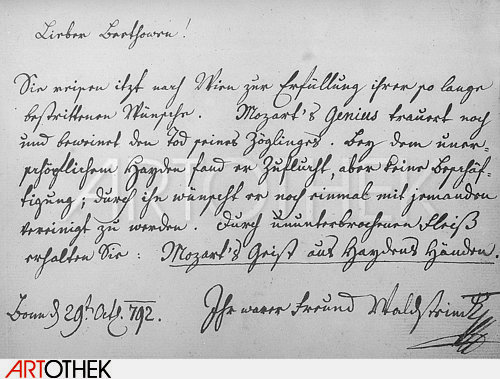 Lieber Beethowen!
Sie reisen itzt nach Wien zur Erfüllung ihrer so lange
bestrittenen Wünsche. Mozart's Genius trauert noch
und beweinet den Tod seines Zöglinges. Bey dem uner-
schöpflichem Hayden fand er Zuflucht, aber keine Beschäf-
tigung; durch ihn wünscht er noch einmal mit jemanden
vereinigt zu werden. Durch ununterbrochenen Fleiß
erhalten Sie: Mozart's Geist aus Haydens Händen.
Bonn d 29t Oct. 792. Ihr warer Freund Waldstein
ARTOTHEK
ARTOTHEK